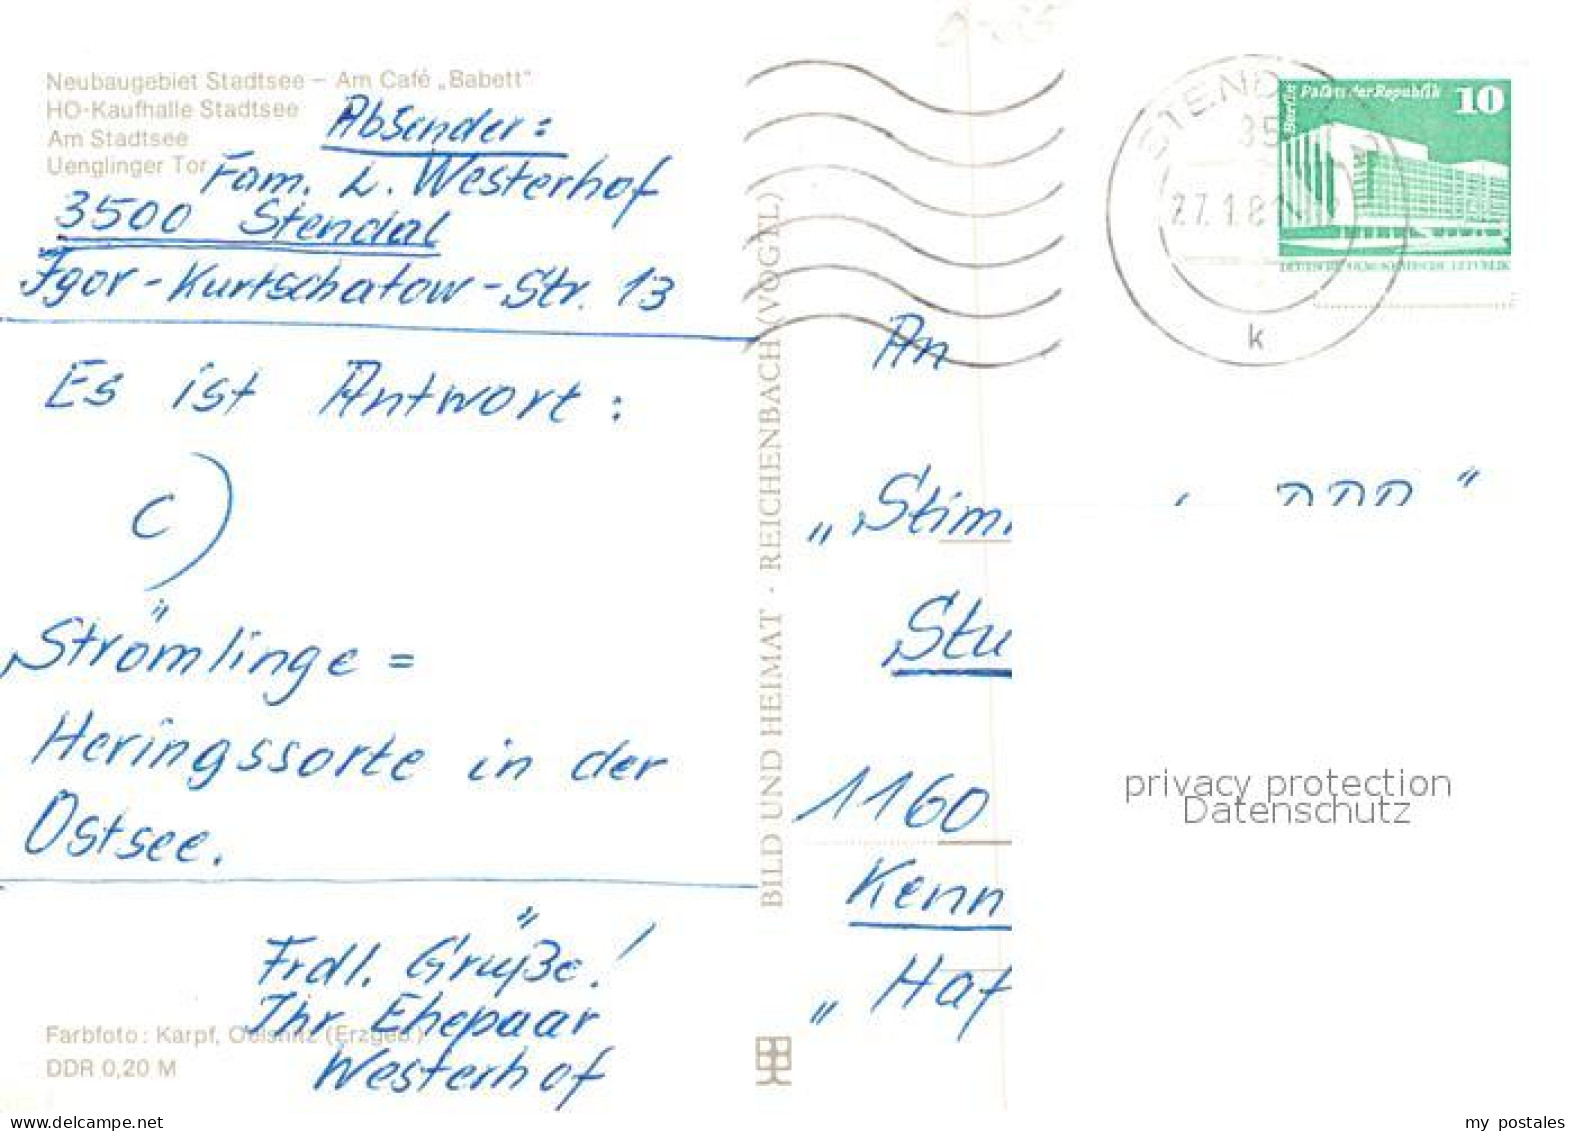 Neubaugebiet Stadtsee – Am Café „Babett"
HO-Kaufhalle Stadtsee
Am Stadtsee
Uenglinger Tor
Absender:
Fam. L. Westerhof
3500 Stendal
Igor-Kurtschatow-Str. 13
Es ist Antwort:
c)
Strömlinge =
Heringssorte in der
Ostsee.
Frdl. Grüße!
Ihr Ehepaar
Westerhof
Farbfoto: Karpf, Oelsnitz (Erzgeb.)
DDR 0,20 M
BILD UND HEIMAT · REICHENBACH (VOGTL)
STEND
35
27.1.8
k
Berlin Palast der Republik 10
DEUTSCHE DEMOKRATISCHE REPUBLIK
An
„Stim
"
Stu
1160
Kenn
„Haf
privacy protection
Datenschutz
my postales